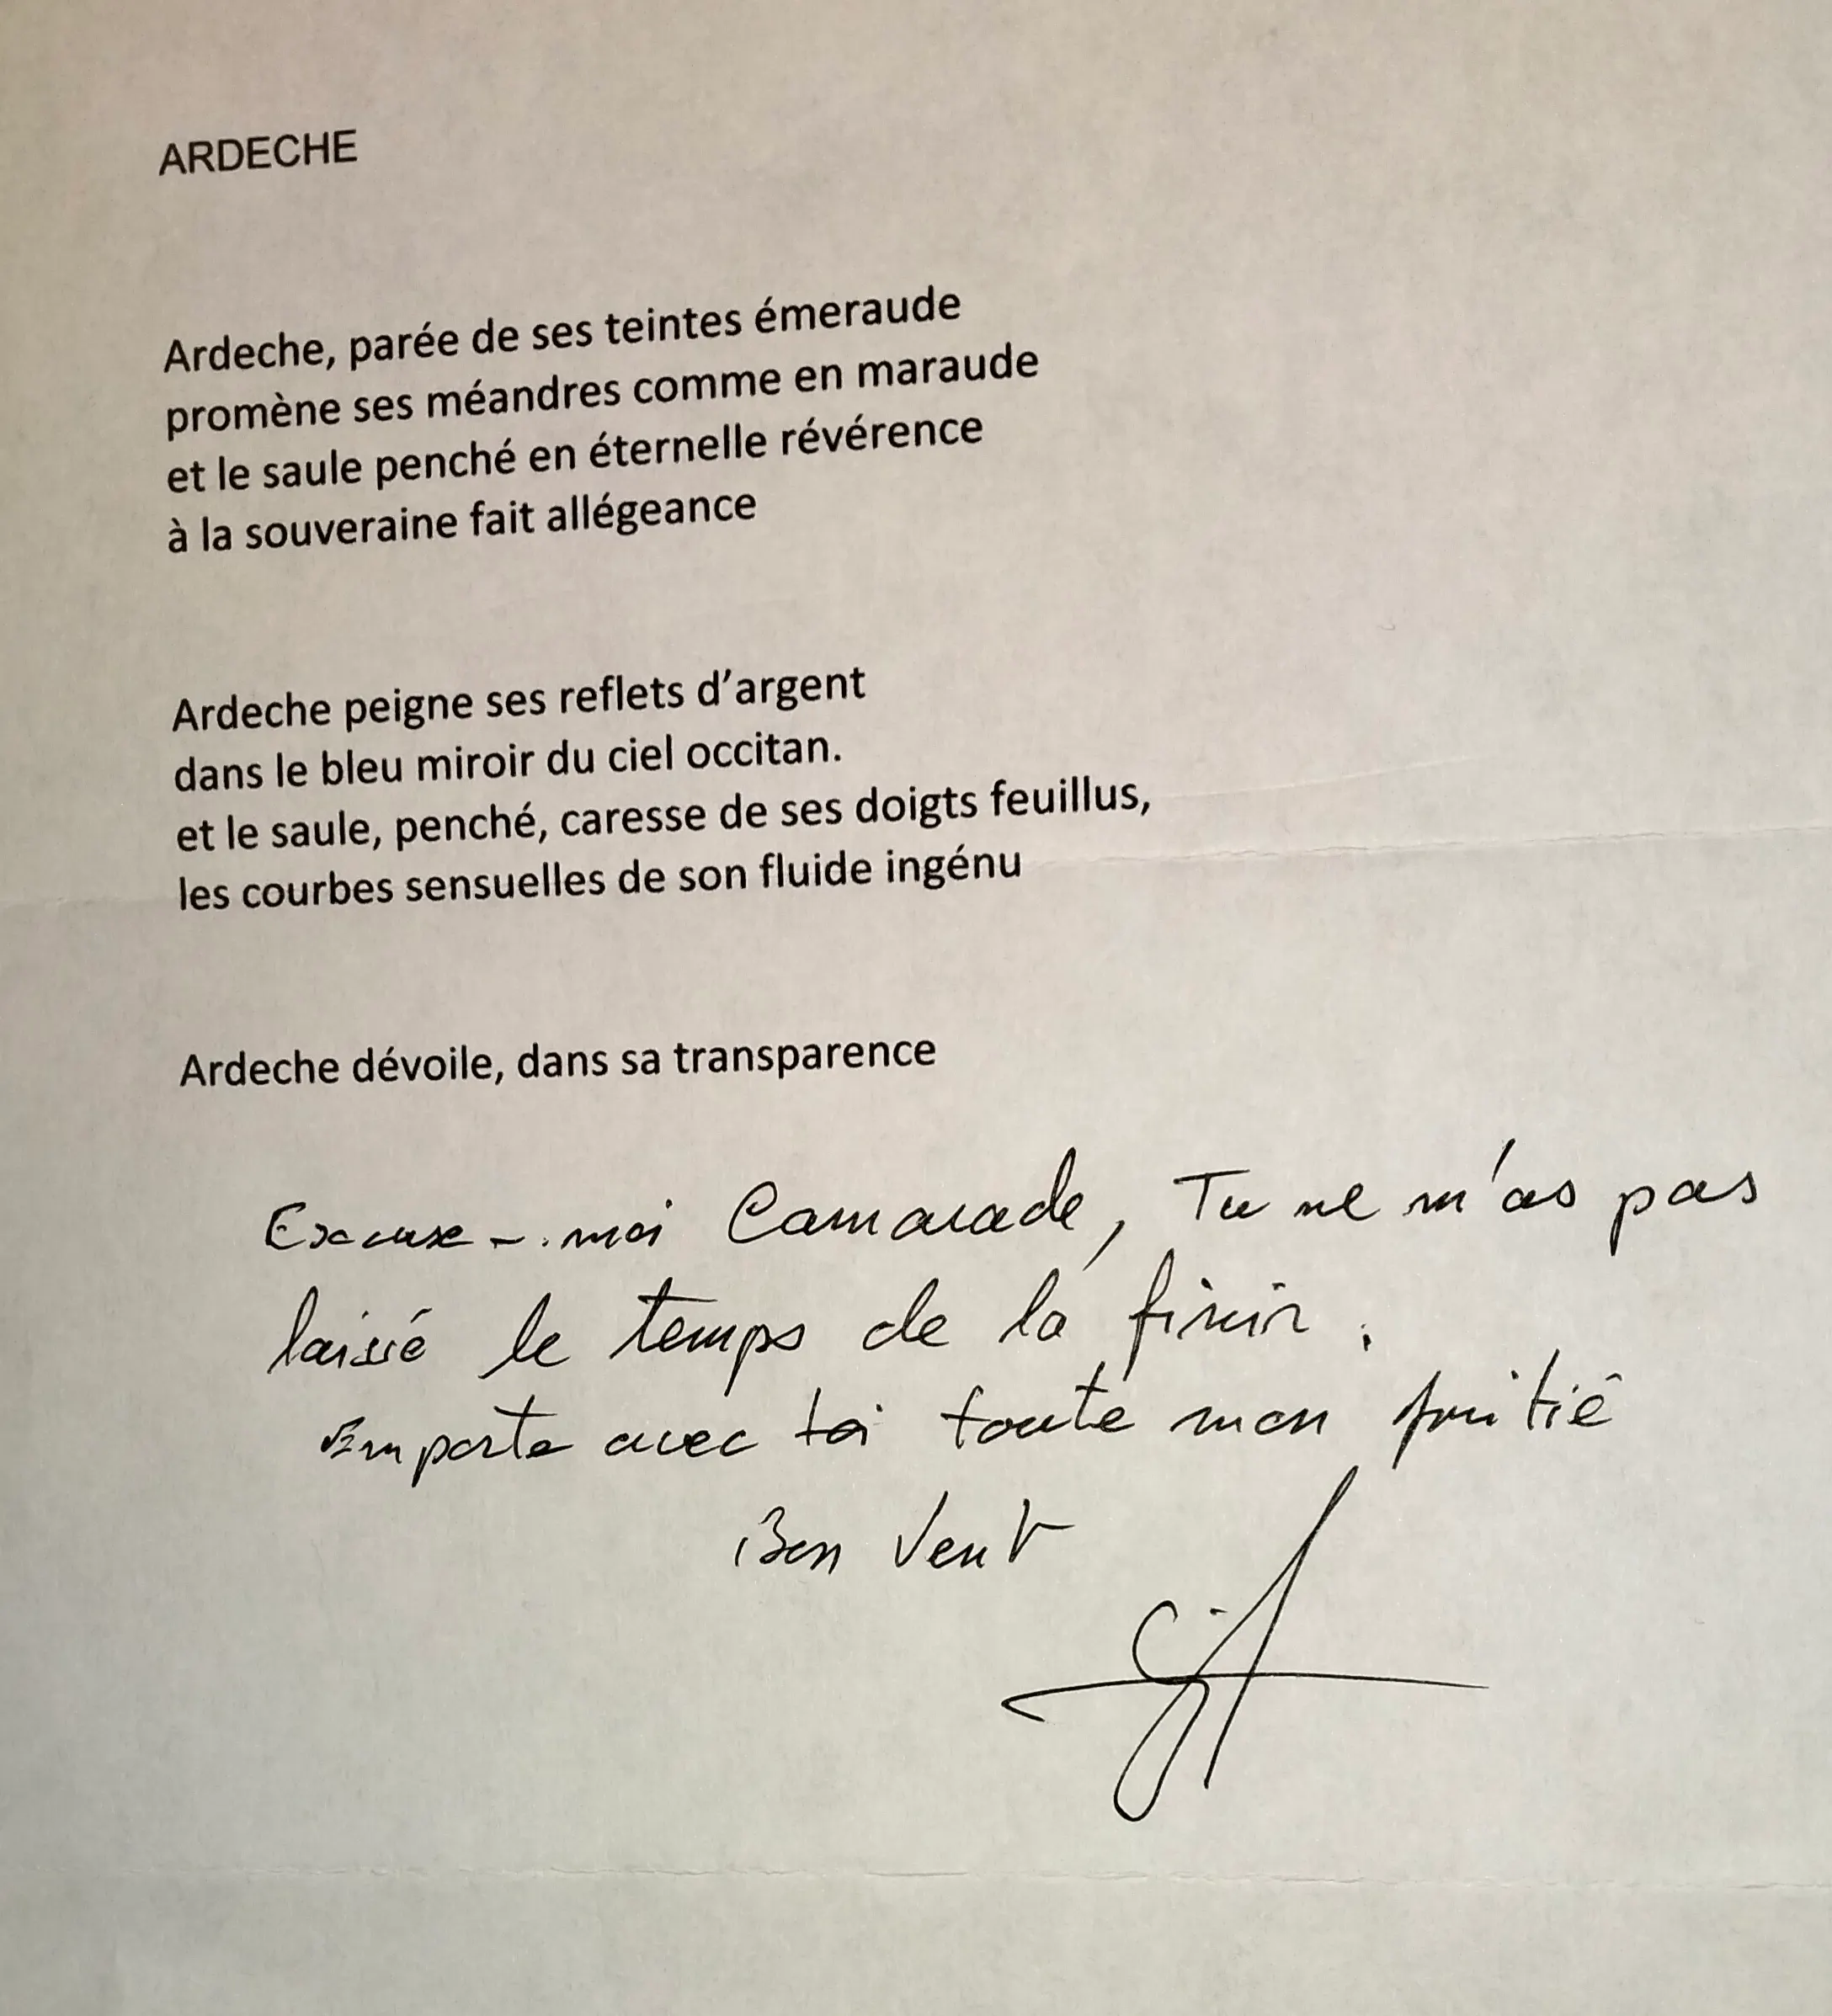 ARDECHE
Ardeche, parée de ses teintes émeraude
promène ses méandres comme en maraude
et le saule penché en éternelle révérence
à la souveraine fait allégeance
Ardeche peigne ses reflets d’argent
dans le bleu miroir du ciel occitan.
et le saule, penché, caresse de ses doigts feuillus,
les courbes sensuelles de son fluide ingénu
Ardeche dévoile, dans sa transparence
Excuse-moi Camarade, Tu ne m'as pas
laissé le temps de la finir.
Emporte avec toi toute mon amitié
Bon Vent